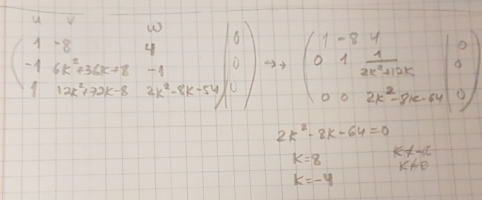 u v w
1 -8 4 | 0
-1 6k²+36k+8 -1 | 0
1 12k²+72k-8 2k²-8k-54 | 0
→→
1 -8 4 | 0
0 1 1/(2k²+12k) | 0
0 0 2k²-8k-64 | 0
2k²-8k-64=0
k=8
k=-4
k≠
k≠0